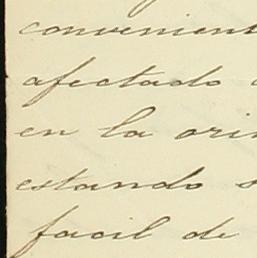 convenient
afectado
en la ori
estando s
facil de